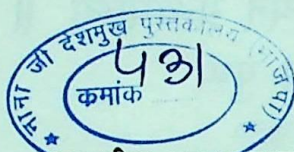 नाना जी देशमुख पुस्तकालय (भाजपा)
क्रमांक
५३१